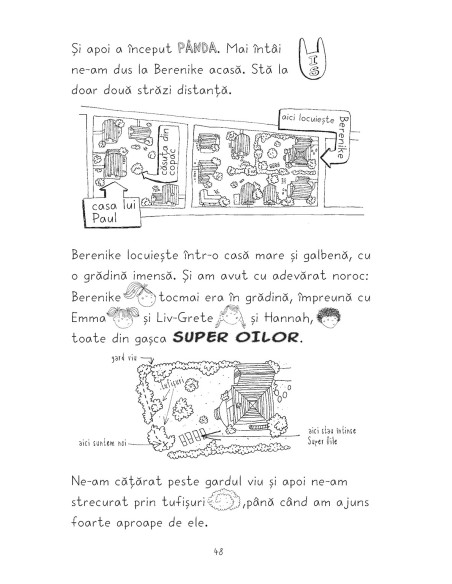 Și apoi a început PÂNDA. Mai întâi
ne-am dus la Berenike acasă. Stă la
doar două străzi distanță.
IS
aici locuiește
Berenike
căsuța din
copac
casa lui
Paul
Berenike locuiește într-o casă mare și galbenă, cu
o grădină imensă. Și am avut cu adevărat noroc:
Berenike tocmai era în grădină, împreună cu
Emma și Liv-Grete și Hannah,
toate din gașca SUPER OILOR.
gard viu
tufișuri
aici suntem noi
aici stau întinse
Super Oile
Ne-am cățărat peste gardul viu și apoi ne-am
strecurat prin tufișuri ,până când am ajuns
foarte aproape de ele.
48